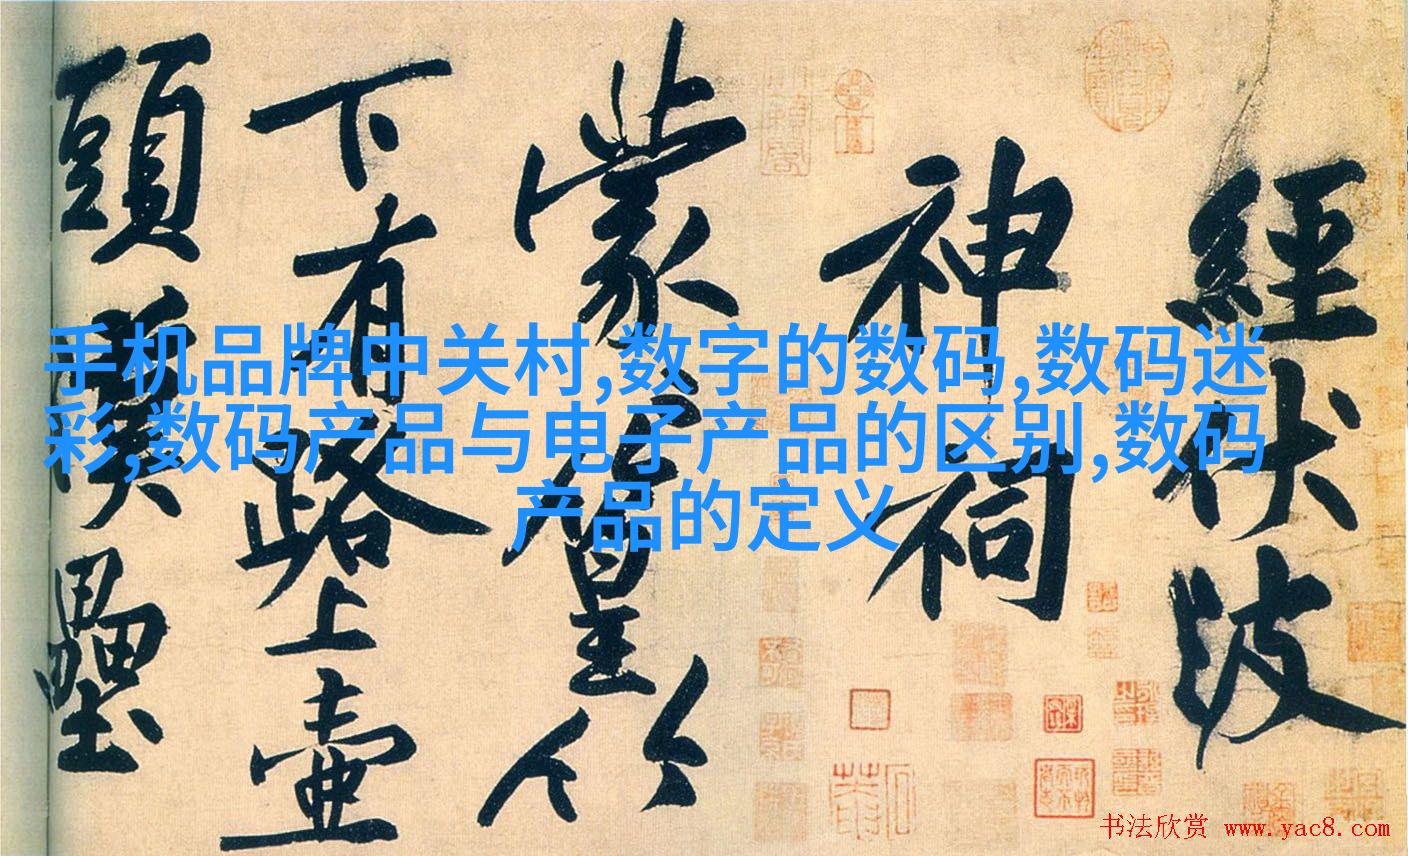 經伏波
神祠
蒙蒙篁竹
下有路上壺
頭漢壘
手机品牌中关村,数字的数码,数码迷
彩,数码产品与电子产品的区别,数码
产品的定义
书法欣赏 www.yac8.com